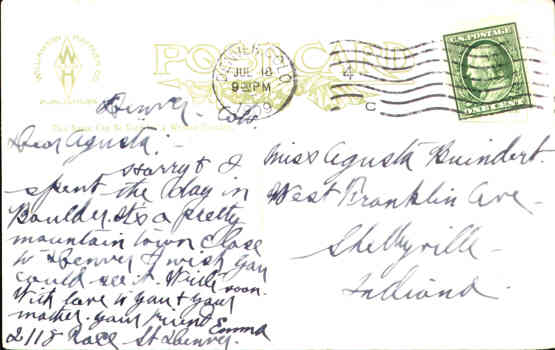 WILLIAMSON-HAFFNER CO.
W H
PUBLISHERS
POST CARD
DENVER, COLO
JUL 18
9 PM
1909
4
C
U.S. POSTAGE
ONE CENT
Denver Colo
Dear Agusta:
Harry & I
spent the day in
Boulder. It's a pretty
mountain town close
to Denver I wish you
could see it. Write soon.
With love to you & your
mother. your friend Emma
2118 Race St Denver.
Miss Agusta
West Franklin Ave.
Shelbyville
Indiana.